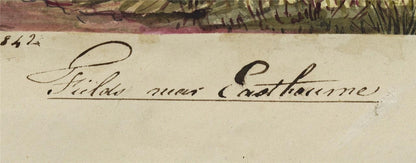 1842
Fields near Eastbourne